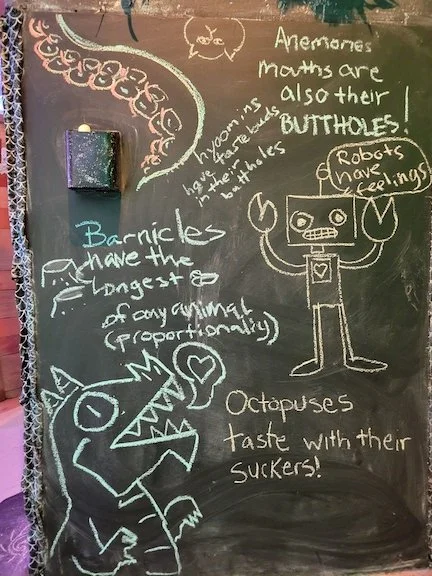 Anemones'
mouths are
also their
BUTTHOLES!
hyoomins
have tastebuds
in their
buttholes
Robots
have
feelings
Barnicles
have the
longest
of any animal
(proportionally)
Octopuses
taste with their
suckers!